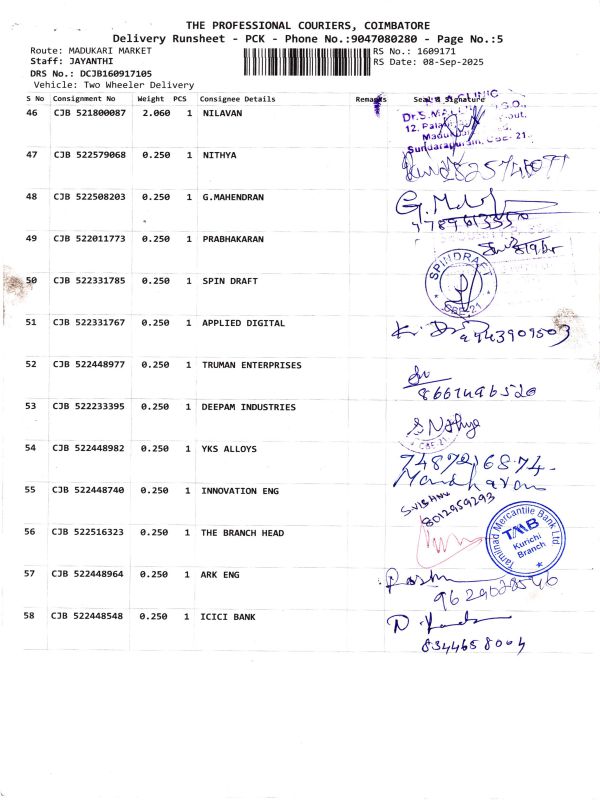 THE PROFESSIONAL COURIERS, COIMBATORE
Delivery Runsheet - PCK - Phone No.:9047080280 - Page No.:5
Route: MADUKARI MARKET RS No.: 1609171
Staff: JAYANTHI RS Date: 08-Sep-2025
DRS No.: DCJB160917105
Vehicle: Two Wheeler Delivery
S No Consignment No Weight PCS Consignee Details Remarks Seal & Signature
46 CJB 521800087 2.060 1 NILAVAN
CLINIC
Dr.S.
12, Palan
Sundarapuram, CBE-21.
47 CJB 522579068 0.250 1 NITHYA
48 CJB 522508203 0.250 1 G.MAHENDRAN
49 CJB 522011773 0.250 1 PRABHAKARAN
50 CJB 522331785 0.250 1 SPIN DRAFT
SPINDRAFT
CBE-21
51 CJB 522331767 0.250 1 APPLIED DIGITAL
9943909503
52 CJB 522448977 0.250 1 TRUMAN ENTERPRISES
53 CJB 522233395 0.250 1 DEEPAM INDUSTRIES
CBE-21
54 CJB 522448982 0.250 1 YKS ALLOYS
Manoharan
55 CJB 522448740 0.250 1 INNOVATION ENG
8012959293
56 CJB 522516323 0.250 1 THE BRANCH HEAD
Tamilnad Mercantile Bank Ltd
TMB
Kurichi
Branch
57 CJB 522448964 0.250 1 ARK ENG
58 CJB 522448548 0.250 1 ICICI BANK
8344658004